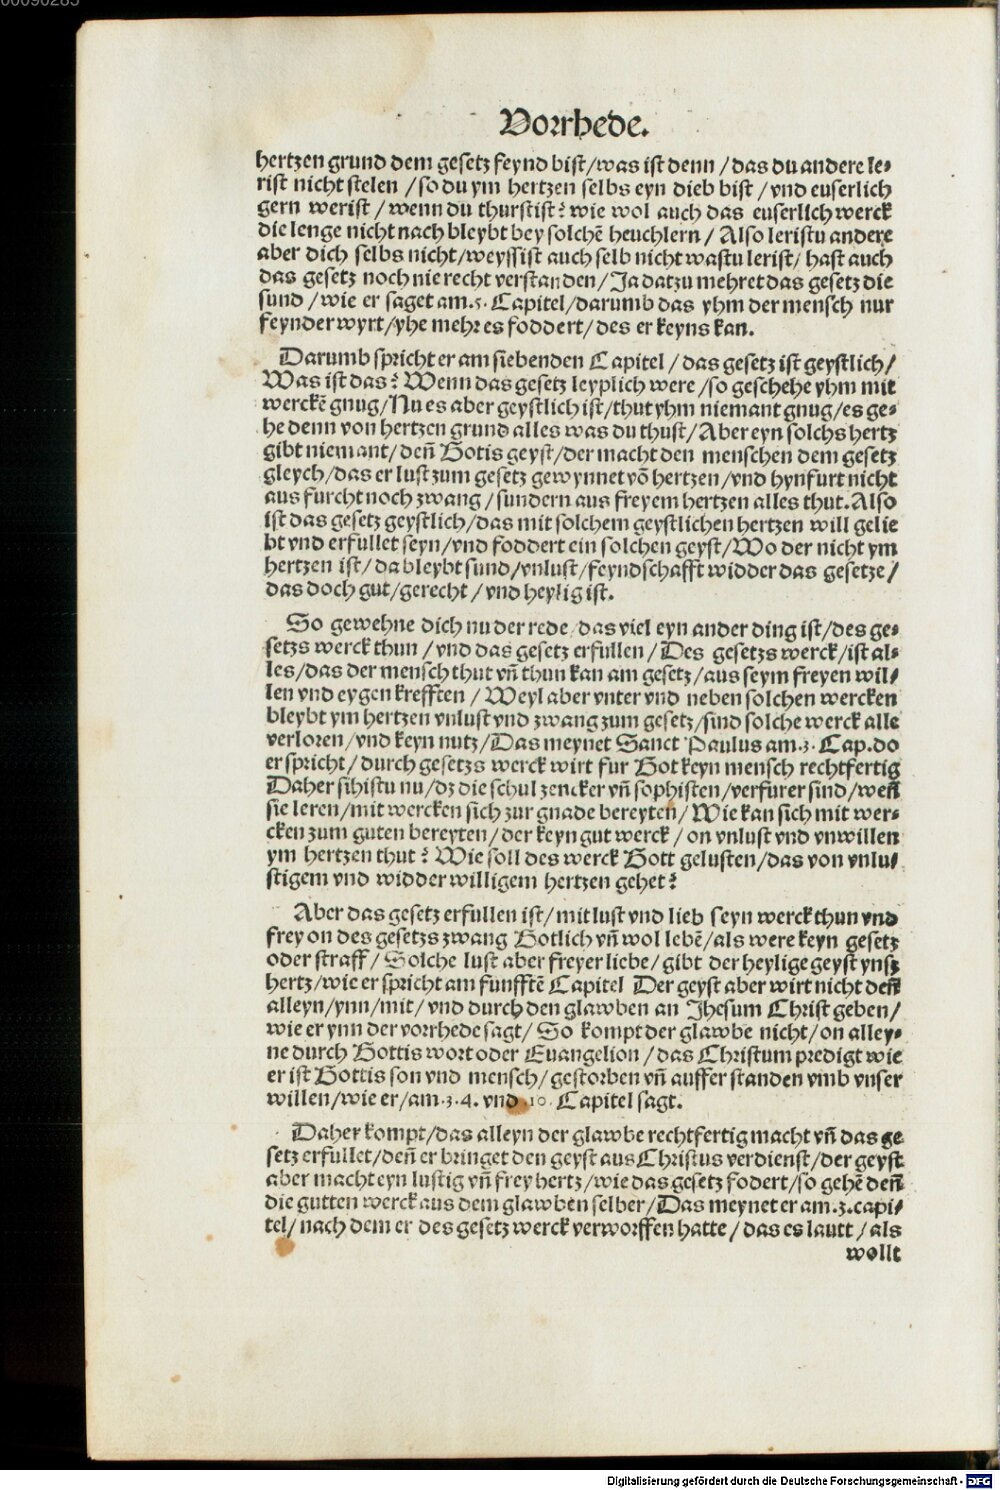 00090285
Vorrhede.
hertzen grund dem gesetz feynd bist/was ist denn/das du andere le⸗
rist nicht stelen/so du ym hertzen selbs eyn dieb bist/vnd euserlich
gern werist/wenn du thurstist? wie wol auch das euserlich werck
die lenge nicht nach bleybt bey solchē heuchlern/Also leristu andere
aber dich selbs nicht/weyssist auch selb nicht was tu lerist/hast auch
das gesetz noch nie recht verstanden/Ja datzu mehret das gesetz die
sund/wie er saget am.5.Capitel/darumb das yhm der mensch nur
feynder wyrt/yhe mehr es foddert/des er keyns kan.
Darumb spricht er am siebenden Capitel/das gesetz ist geystlich/
Was ist das? Wenn das gesetz leyplich were/so geschehe yhm mit
werckē gnug/Nu es aber geystlich ist/thut yhm niemant gnug/es ge⸗
he denn von hertzen grund alles was du thust/Aber eyn solchs hertz
gibt niemant/deñ Gotis geyst/der macht den menschen dem gesetz
gleych/das er lust zum gesetz gewynnet võ hertzen/vnd hynfurt nicht
aus furcht noch zwang/sundern aus freyem hertzen alles thut.Also
ist das gesetz geystlich/das mit solchem geystlichen hertzen will gelie
bt vnd erfullet seyn/vnd foddert ein solchen geyst/Wo der nicht ym
hertzen ist/da bleybt sund/vnlust/feyndschafft widder das gesetze/
das doch gut/gerecht/vnd heylig ist.
So gewehne dich nu der rede/das viel eyn ander ding ist/des ge⸗
setzs werck thun/vnd das gesetz erfullen/Des gesetzs werck/ist al⸗
les/das der mensch thut vñ thun kan am gesetz/aus seym freyen wil/
len vnd eygen krefften/Weyl aber vnter vnd neben solchen wercken
bleybt ym hertzen vnlust vnd zwang zum gesetz/sind solche werck alle
verloren/vnd keyn nutz/Das meynet Sanct Paulus am.3.Cap.do
er spricht/durch gesetzs werck wirt fur Got keyn mensch rechtfertig
Daher sihistu nu/dz die schul zencker vñ sophisten/verfurer sind/weñ
sie leren/mit wercken sich zur gnade bereyten/Wie kan sich mit wer⸗
cken zum guten bereyten/der keyn gut werck/on vnlust vnd vnwillen
ym hertzen thut? Wie soll des werck Gott gelusten/das von vnlu/
stigem vnd widder willigem hertzen gehet?
Aber das gesetz erfullen ist/mit lust vnd lieb seyn werck thun vnd
frey on des gesetzs zwang Gotlich vñ wol lebē/als were keyn gesetz
oder straff/Solche lust aber freyer liebe/gibt der heylige geyst ynsz
hertz/wie er spricht am funfftē Capitel Der geyst aber wirt nicht deñ
alleyn/ynn/mit/vnd durch den glawben an Jhesum Christ geben/
wie er ynn der vorrhede sagt/So kompt der glawbe nicht/on alley⸗
ne durch Gottis wort oder Euangelion/das Christum predigt wie
er ist Gottis son vnd mensch/gestorben vñ auffer standen vmb vnser
willen/wie er/am.3.4.vnd.10.Capitel sagt.
Daher kompt/das alleyn der glawbe rechtfertig macht vñ das ge
setz erfullet/deñ er bringet den geyst aus Christus verdienst/der geyst
aber macht eyn lustig vñ frey hertz/wie das gesetz fodert/so gehē deñ
die gutten werck aus dem glawben selber/Das meynet er am.3.capi/
tel/nach dem er des gesetz werck verworffen hatte/das es lautt/als
wollt
Digitalisierung gefördert durch die Deutsche Forschungsgemeinschaft - DFG